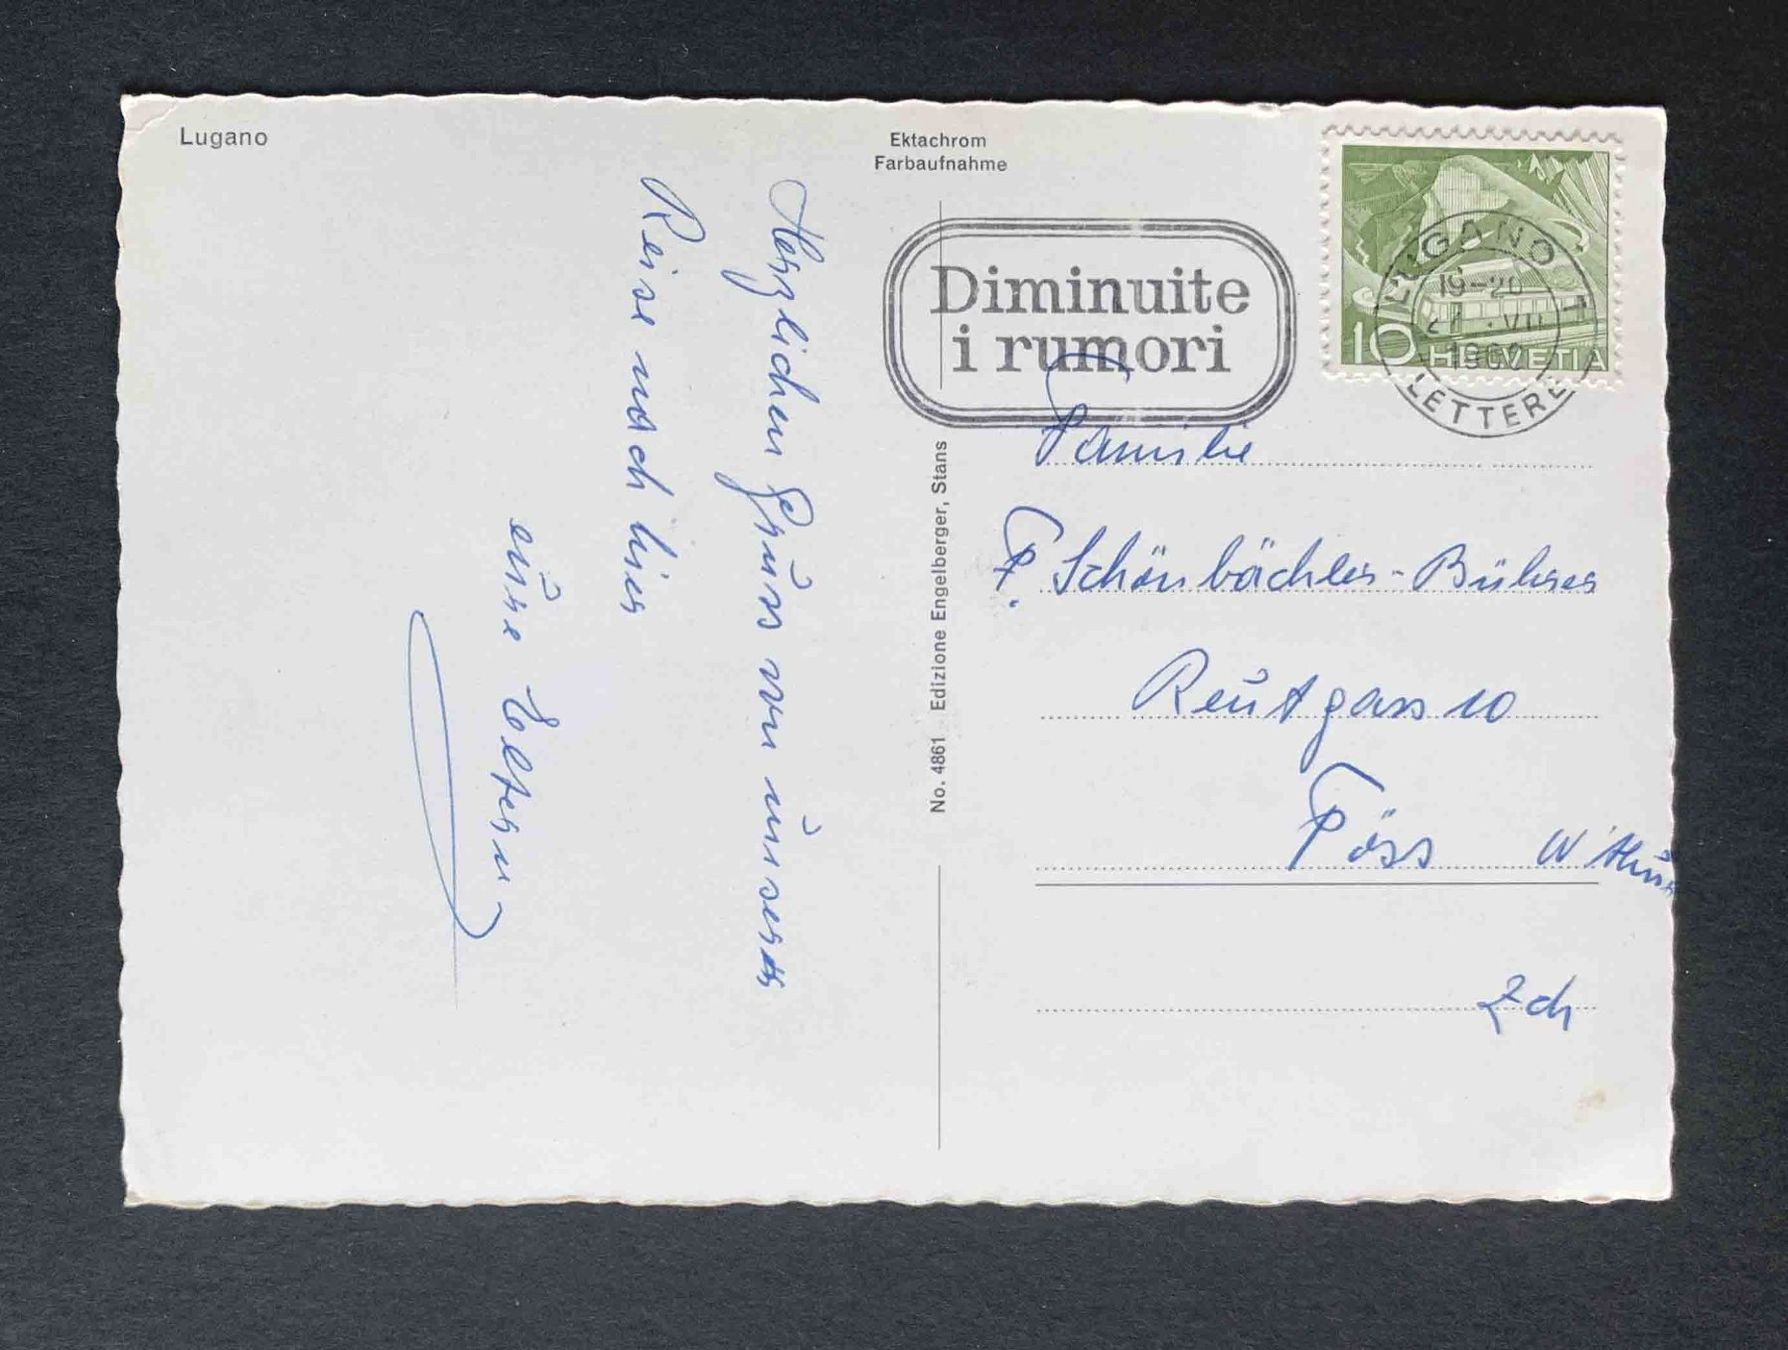 Lugano
Ektachrom
Farbaufnahme
Diminuite
i rumori
LUGANO 1
19-20
VII
LETTERE
10 HELVETIA
Herzlichen Gruss von unserer
Reise nach hier
eure Eltern
No. 4861 Edizione Engelberger, Stans
Familie
F. Schönbächler-Bührer
Reutgass 10
Töss W'thur
Zch